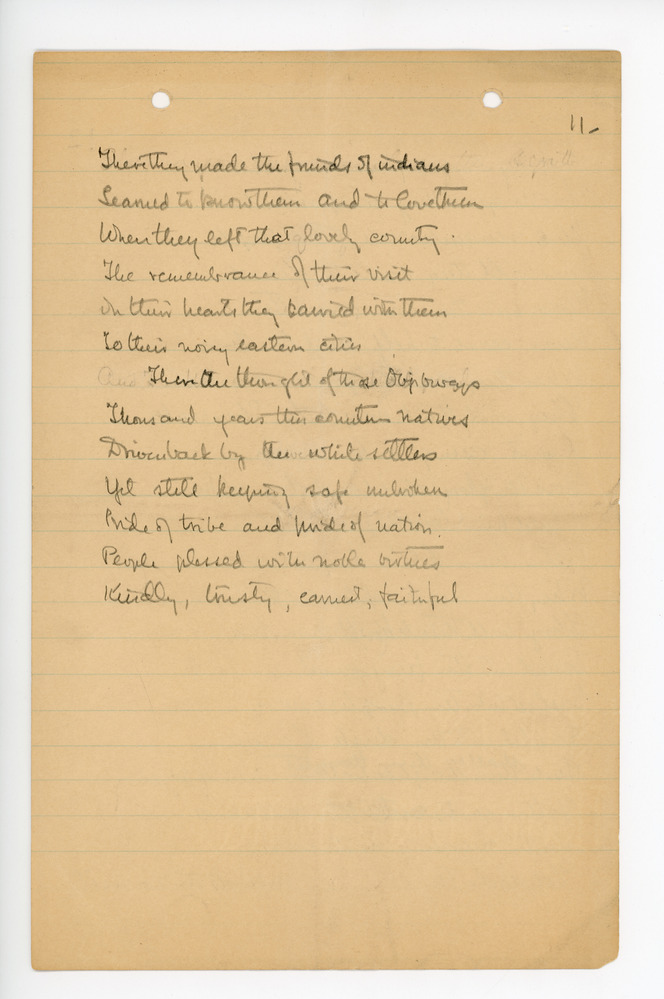 11-
There they made the friends of indians
Learned to know them and to love them
When they left that lovely country.
The remembrance of their visit
in their hearts they carried with them
To their noisy eastern cities
And There the thought of those Objibways
Thousand years this countrys natives
Driven back by the white settlers
Yet still keeping safe unbroken
Pride of tribe and pride of nation.
People plessed with noble virtues
Kindly, trusty, earnest, faithful